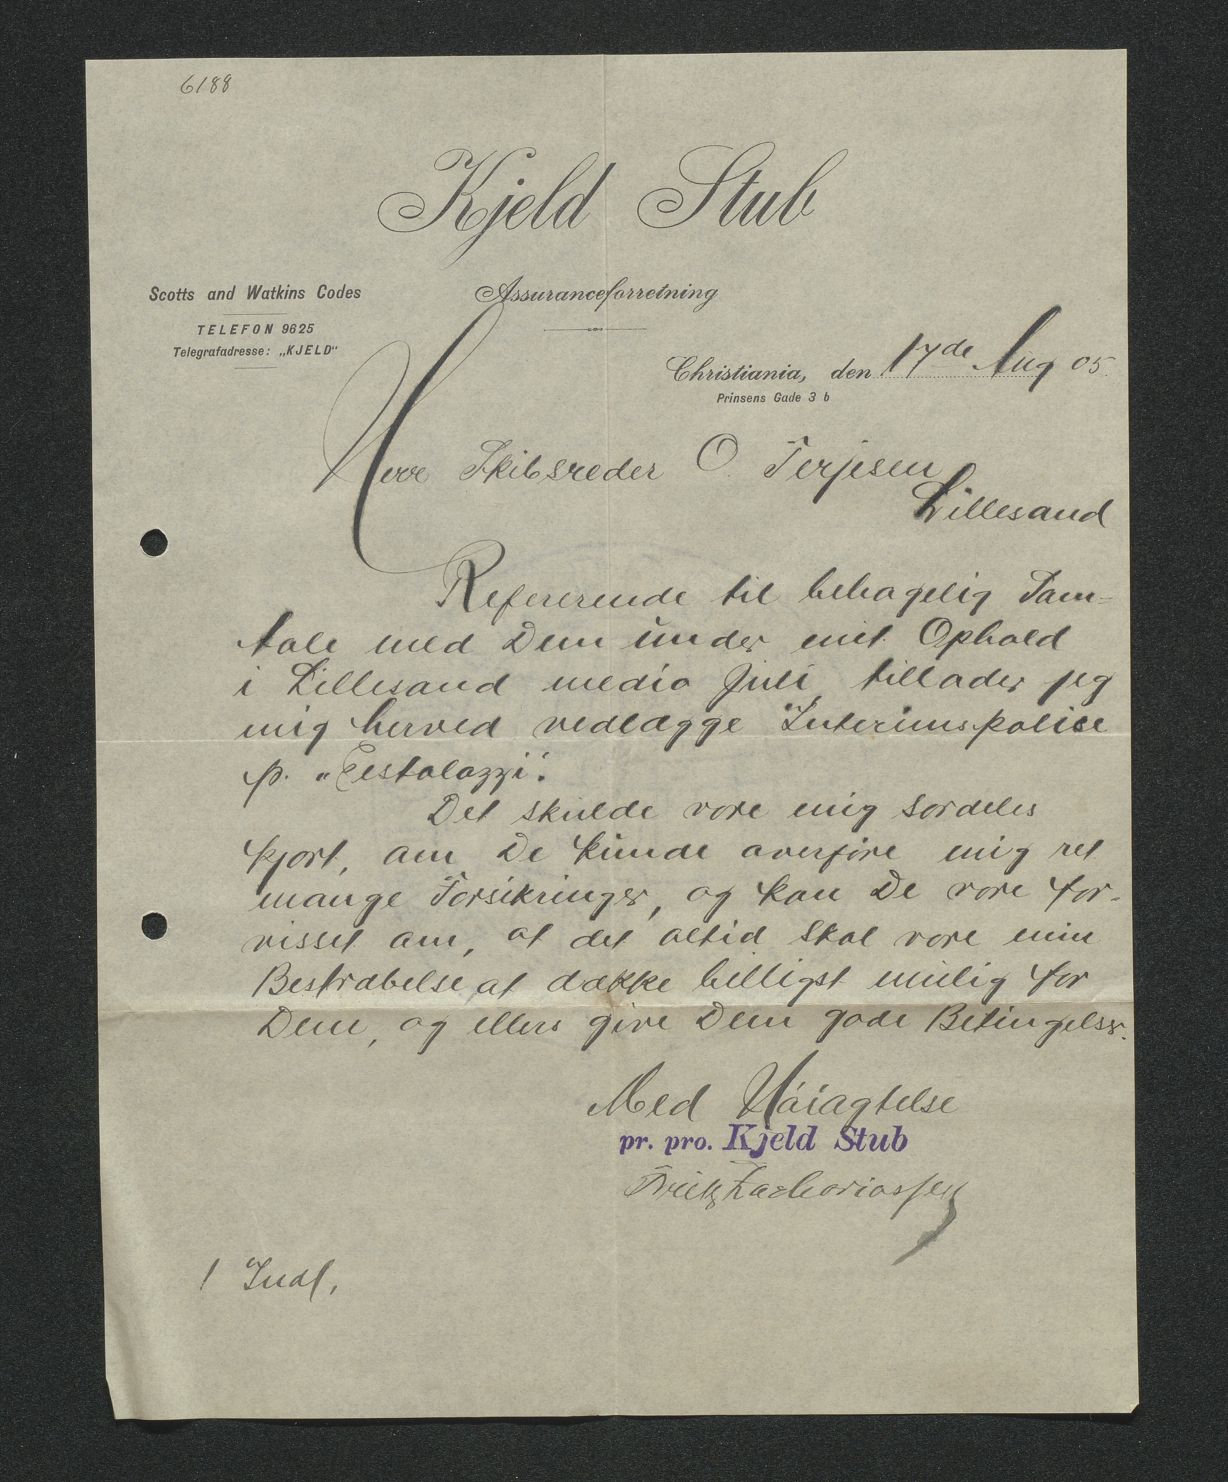 6188
Kjeld Stub
Scotts and Watkins Codes
Assuranceforretning
TELEFON 9625
Telegrafadresse: „KJELD“
Christiania, den 17de Aug 05.
Prinsens Gade 3 b
Herr Skibsreder O. Terjesen
Lillesand
Refererende til behagelig Sam-
tale med Dem under mit Ophold
i Lillesand medio Juli, tillader jeg
mig herved vedlægge Interimspolice
p. „Pestalozzi“.
Det skulde være mig særdeles
kjært, om De kunde overføre mig ret
mange Forsikringer, og kan De være for-
visset om, at det altid skal være min
Bestræbelse at dække billigst mulig for
Dem, og ellers give Dem gode Betingelser.
Med Høiagtelse
pr. pro. Kjeld Stub
Zachariassen
1 Indl.